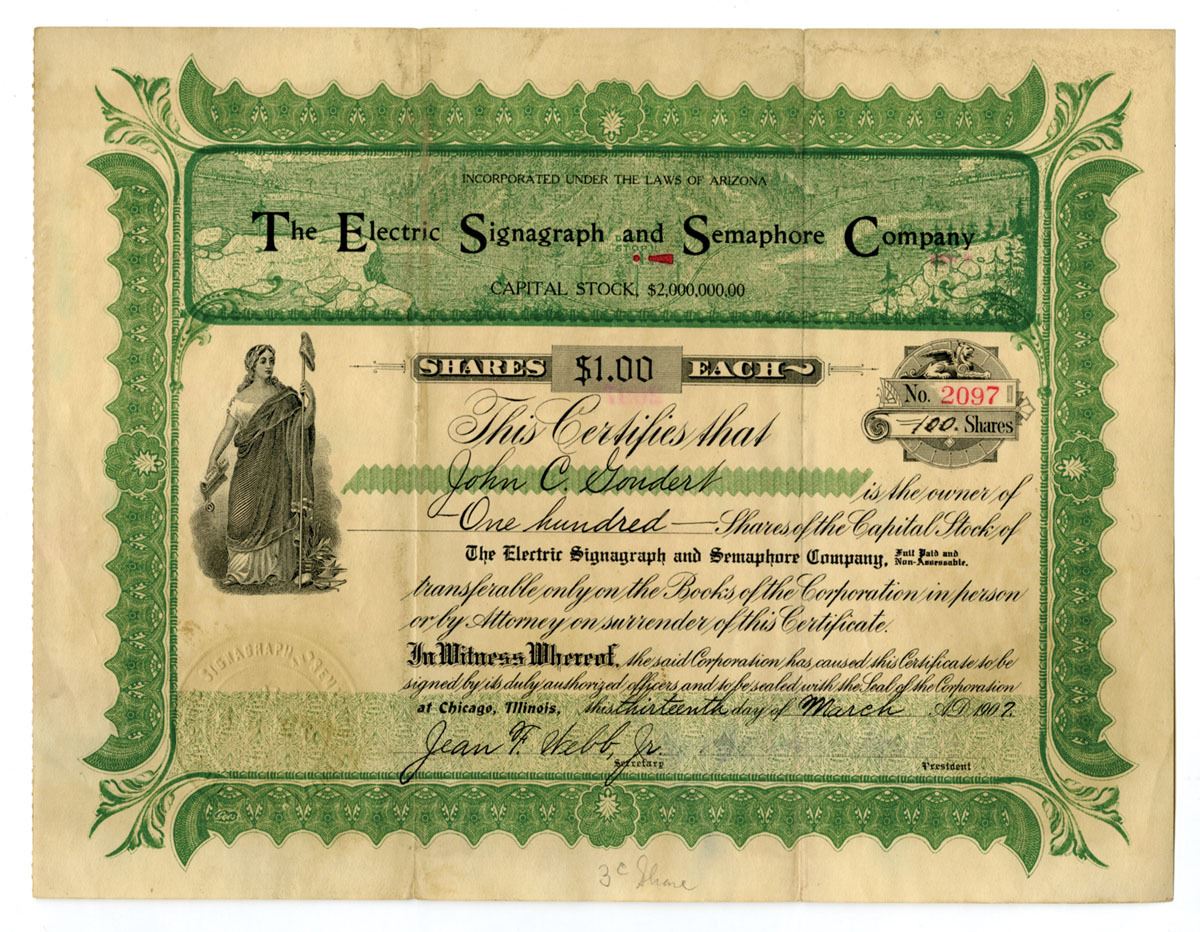 INCORPORATED UNDER THE LAWS OF ARIZONA
The Electric Signagraph and Semaphore Company
CAPITAL STOCK, $2,000,000,00
SHARES $1.00 EACH
No. 2097
100. Shares
This Certifies that
John C. Gondert is the owner of
One hundred Shares of the Capital Stock of
The Electric Signagraph and Semaphore Company, Full Paid and Non-Assessable.
transferable only on the Books of the Corporation in person
or by Attorney on surrender of this Certificate.
In Witness Whereof, the said Corporation has caused this Certificate to be
signed by its duly authorized officers and to be sealed with the Seal of the Corporation
at Chicago, Illinois, this thirteenth day of March A.D. 1907.
Jean F. Webb, Jr.
Secretary President
3c Share